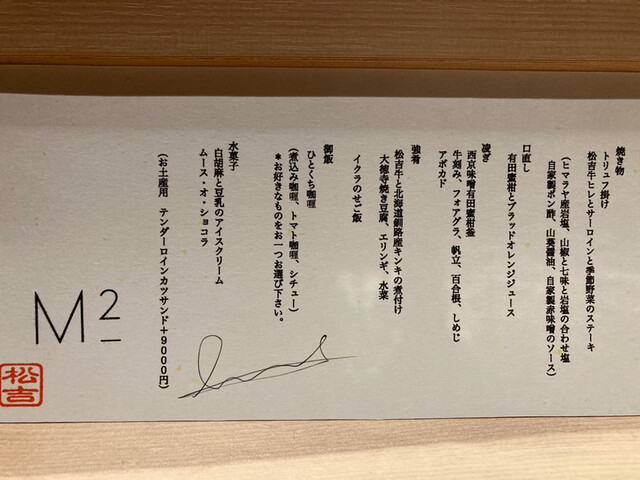 焼き物
トリュフ掛け
松吉牛ヒレとサーロインと季節野菜のステーキ
(ヒマラヤ産岩塩、山椒と七味と岩塩の合わせ塩
自家製ポン酢、山葵醤油、自家製赤味噌のソース)
口直し
有田蜜柑とブラッドオレンジジュース
凌ぎ
西京味噌有田蜜柑釜
牛刻み、フォアグラ、帆立、百合根、しめじ
アボカド
強肴
松吉牛と北海道釧路産キンキの煮付け
大徳寺焼き豆腐、エリンギ、水菜
イクラのせご飯
御飯
ひとくち咖喱
(煮込み咖喱、トマト咖喱、シチュー)
*お好きなものをお一つお選び下さい。
水菓子
白胡麻と豆乳のアイスクリーム
ムース・オ・ショコラ
(お土産用 テンダーロインカツサンド+9000円)
M2
松吉